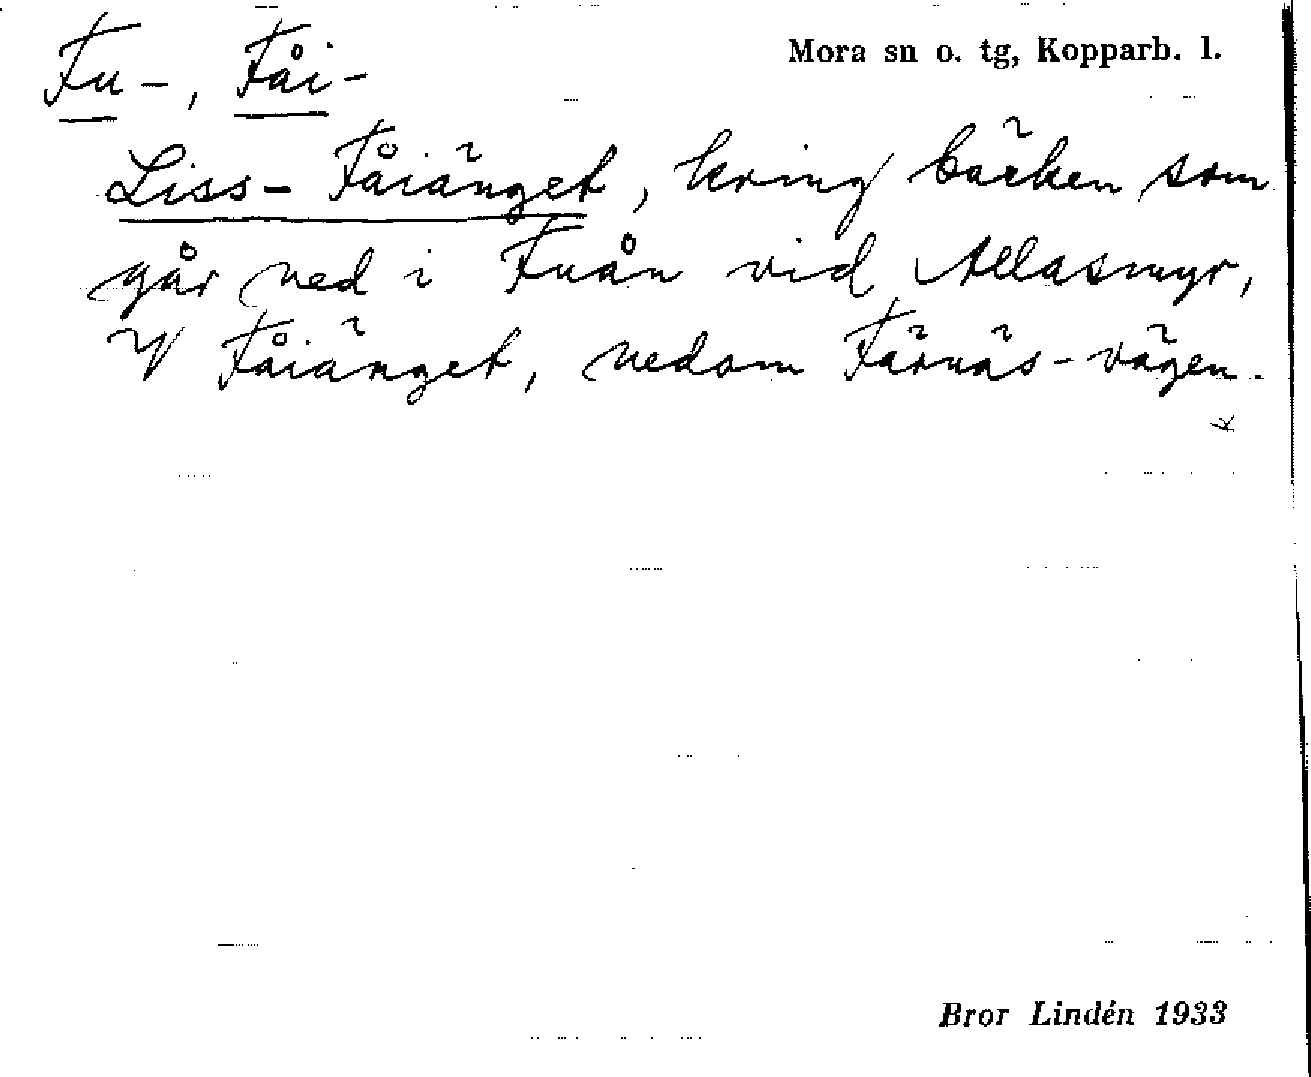 Fu-, Fåi-
Mora sn o. tg, Kopparb. l.
Liss-Fåiänget, kring bäcken som
går ned i Fuån vid Allasmyr,
V Fåiänget, nedom Färnäs-vägen.
k
Bror Lindén 1933